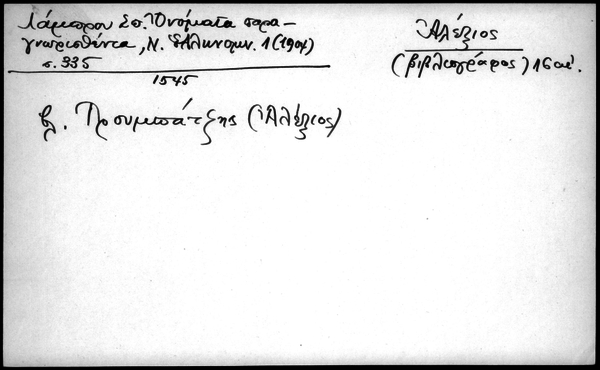 Λάμπρου Σπ. Ὀνόματα παρα-
γνωρισθέντα, Ν. Ἑλληνομν. 1 (1904)
σ. 335
1545
Ἀλέξιος
(βιβλιογράφος) 16 αἰ.
βλ. Προυμπάτζης (Ἀλέξιος)